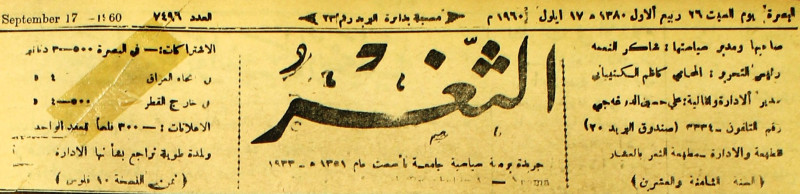 البصرة: يوم السبت ٢٦ ربيع الاول ١٣٨٠ ه ١٧ ايلول ١٩٦٠ م
مسجلة بدائرة البريد رقم ٢٣
العدد ٧٤٩٦
September 17 - 1960
صاحبها ومدير سياستها: شاكر النعمه
رئيس التحرير: المحامي كاظم
مدير الادارة والمالية: علي حسين
رقم التلفون - ٣٣٣٤ (صندوق البريد ٢٠)
المطبعة والادارة - مطبعة الثغر بالعشار
(السنة الثامنة والعشرين)
الثغر
جريدة يومية سياسية جامعة تأسست عام ١٣٥١ ه - ١٩٣٣
الاشتراكات: - في البصرة ٥٠٠ - ٣ دنانير
في انحاء العراق ٥ ٤
في خارج القطر ٥٠٠ - ٤
الاعلانات: - ٣٠٠ فلساً للعقد الواحد
ولمدة طويلة تراجع بشأنها الادارة
(ثمن النسخة ١٠ فلوس)